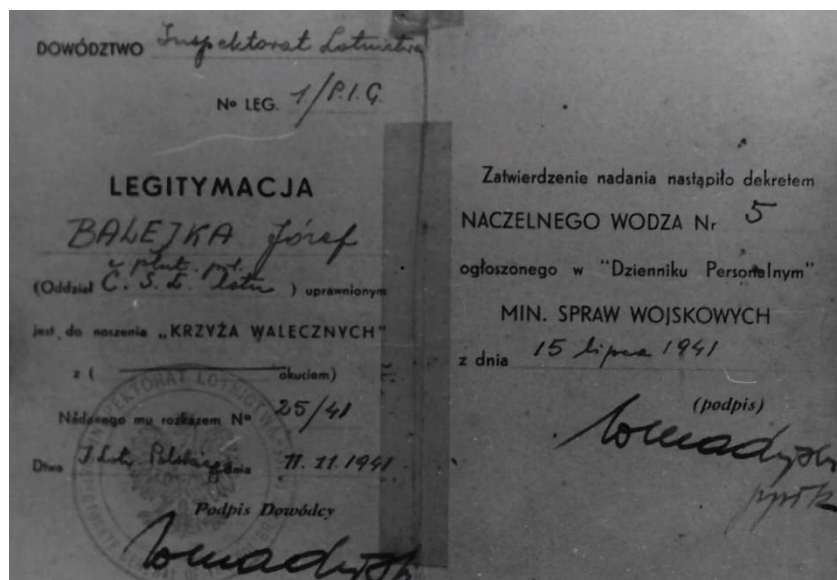 DOWÓDZTWO Inspektorat Lotnictwa
Nº LEG. 1/P.I.G.
LEGITYMACJA
BALEJKA Józef
plut. pil.
(Oddział C. S. L. ) uprawnionym
jest do noszenia „KRZYŻA WALECZNYCH”
z ( okuciem)
Nadanego mu rozkazem Nº 25/41
Dtwa I. Lotn. dnia 11.11.1941
Podpis Dowódcy
INSPEKTORAT LOTNICTWA
Zatwierdzenie nadania nastąpiło dekretem
NACZELNEGO WODZA Nr 5
ogłoszonego w "Dzienniku Personalnym"
MIN. SPRAW WOJSKOWYCH
z dnia 15 lipca 1941
(podpis)
ppłk